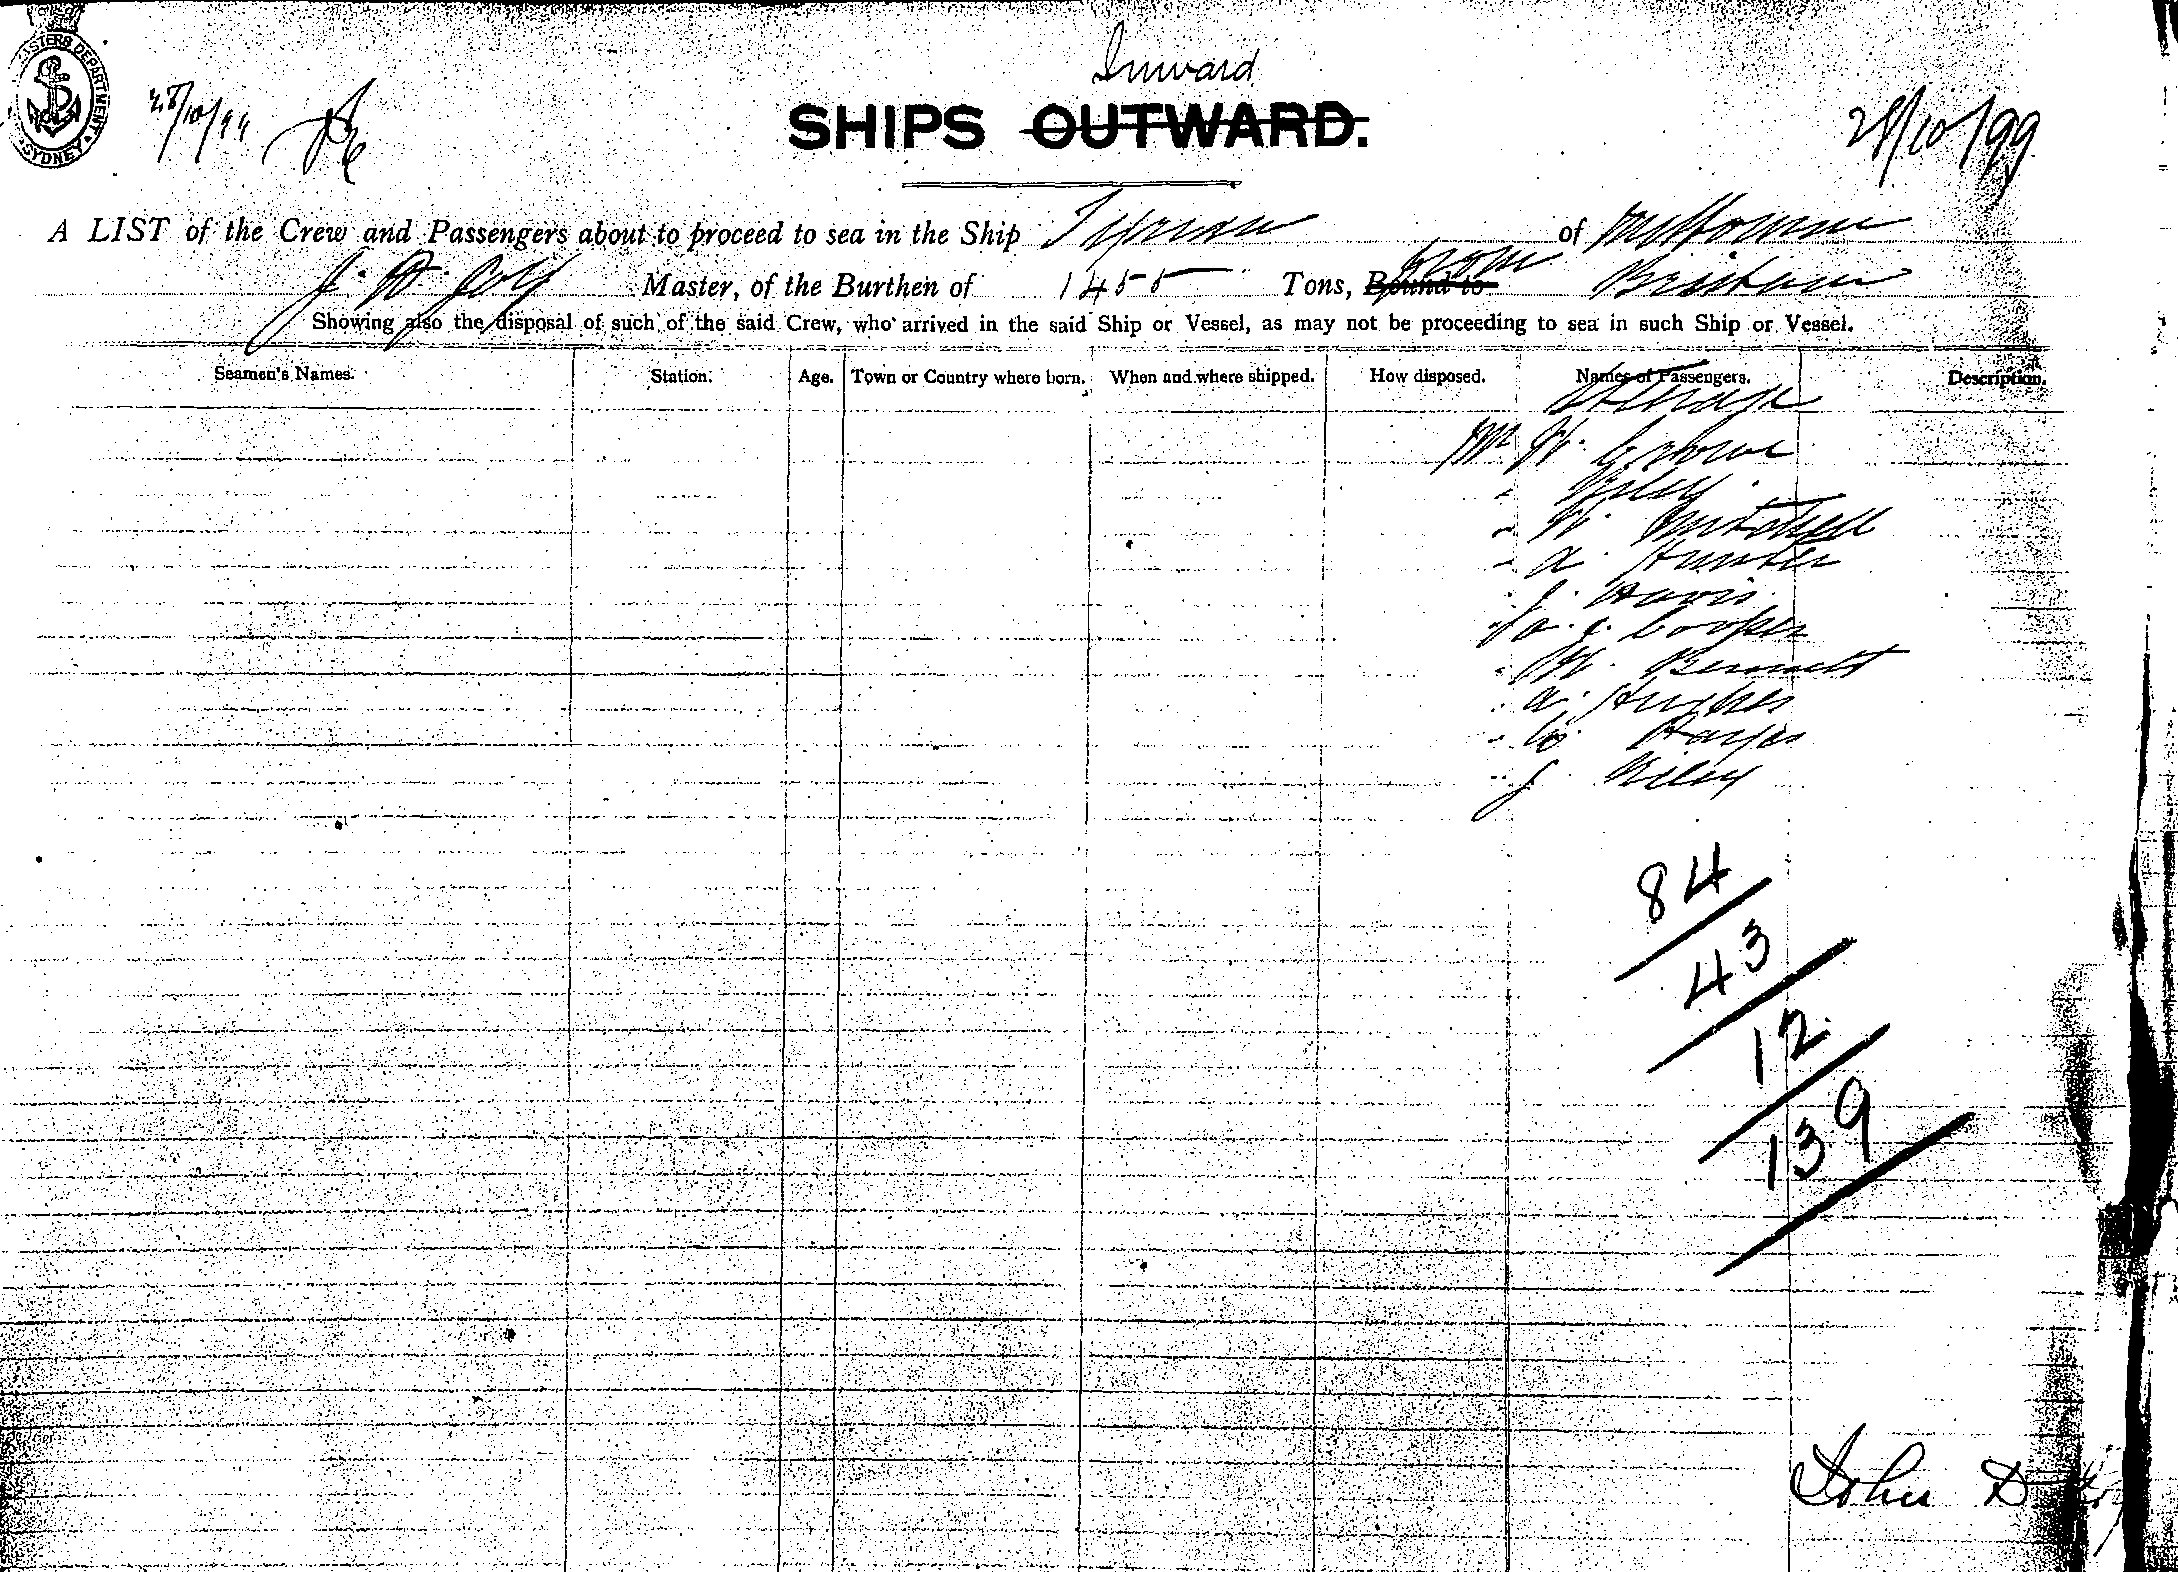 Inward
SHIPS OUTWARD.
28/10/99
28/10/99
A LIST of the Crew and Passengers about to proceed to sea in the Ship Tyrian of Melbourne
J. D. Joy Master, of the Burthen of 1455 Tons, Bound to from Brisbane
Showing also the disposal of such of the said Crew, who arrived in the said Ship or Vessel, as may not be proceeding to sea in such Ship or Vessel.
Seamen's Names. Station. Age. Town or Country where born. When and where shipped. How disposed. Names of Passengers. Description.
Steerage
Mr W.
" Riley
" W. Mitchell
" A. Hunter
" J. Davis
Cooper
" W. Bennett
" A. Hughes
" Harper
" J. Riley
84
43
12
139
John D